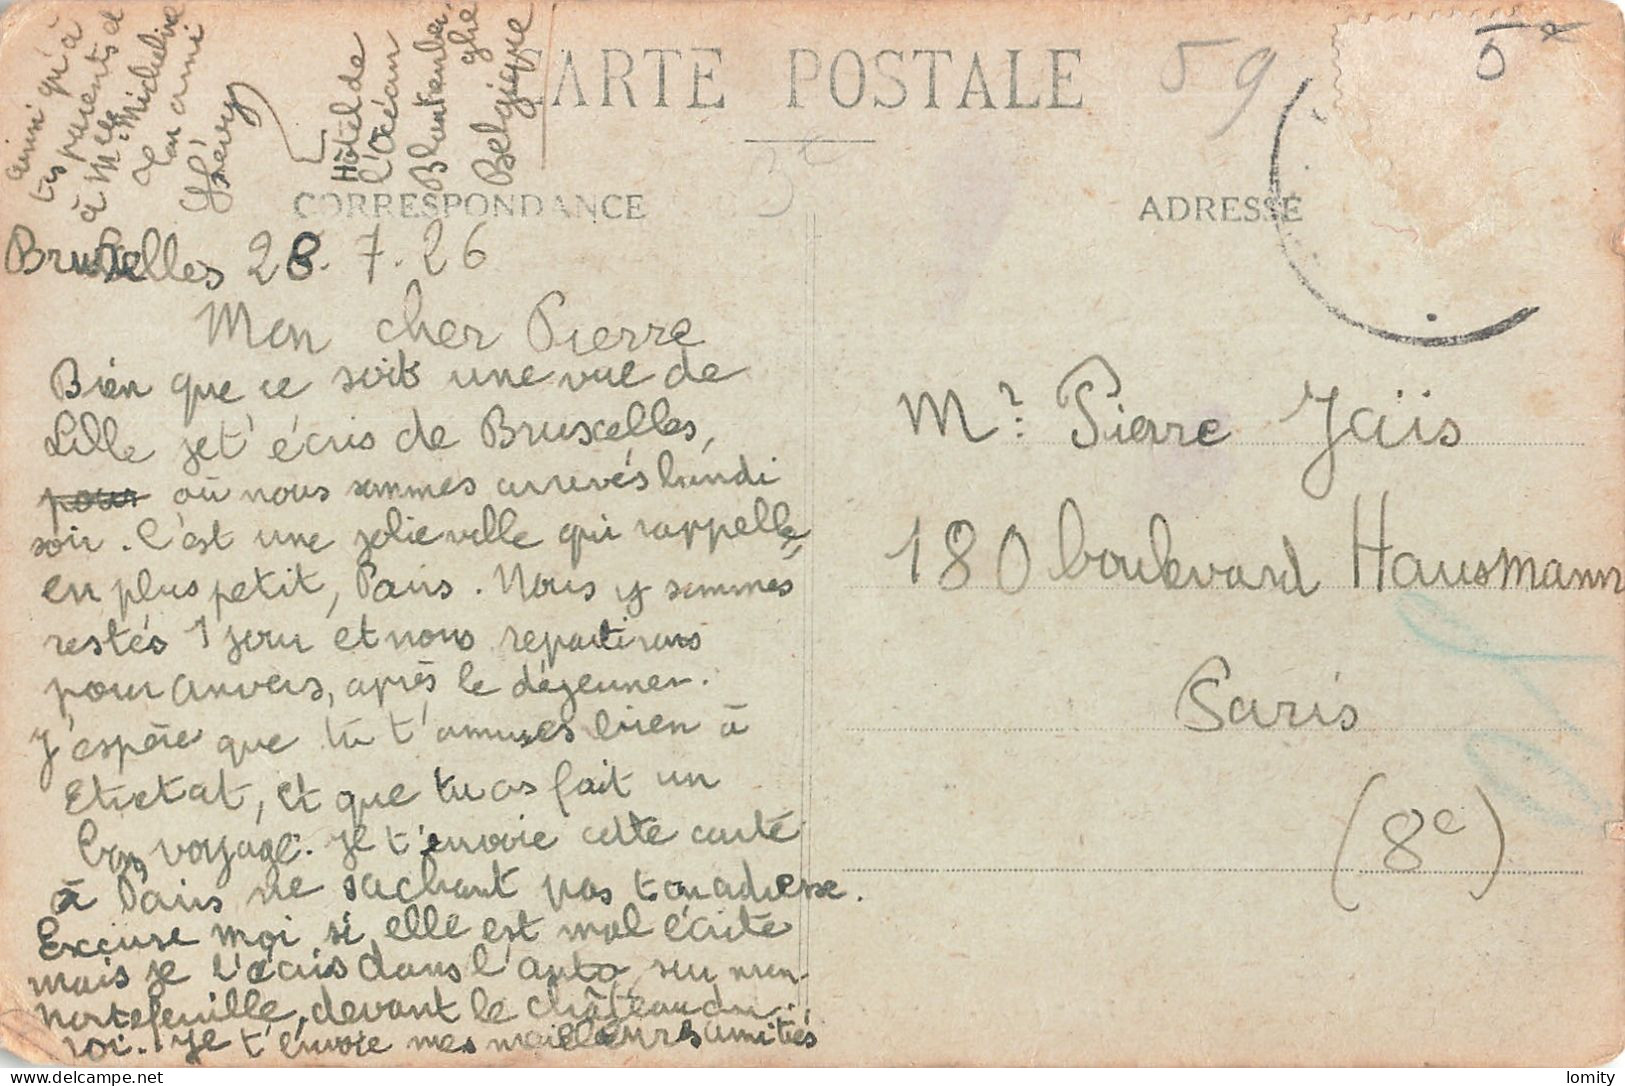 CARTE POSTALE
59
3e
CORRESPONDANCE
ADRESSE
Bruxelles 28.7.26
Mon cher Pierre
Bien que ce soit une vue de
Lille je t'écris de Bruxelles,
pour où nous sommes arrivés lundi
soir. C'est une jolie ville qui rappelle,
en plus petit, Paris. Nous y sommes
restés 1 jour et nous repartirons
pour Anvers, après le déjeuner.
J'espère que tu t'amuses bien à
Etretat, et que tu as fait un
bon voyage. Je t'envoie cette carte
à Paris ne sachant pas ton adresse.
Excuse moi si elle est mal écrite
mais je l'écris dans l'auto, sur mon
portefeuille, devant le château du
roi. Je t'envoie mes meilleures amitiés
ainsi qu'à
tes parents et
à Mlle Micheline
Ton ami
Hôtel de
l'Océan
Blankenber
ghe
Belgique
Mr Pierre Jaïs
180 boulevard Hausmann
Paris
(8e)
lomity
delcampe.net